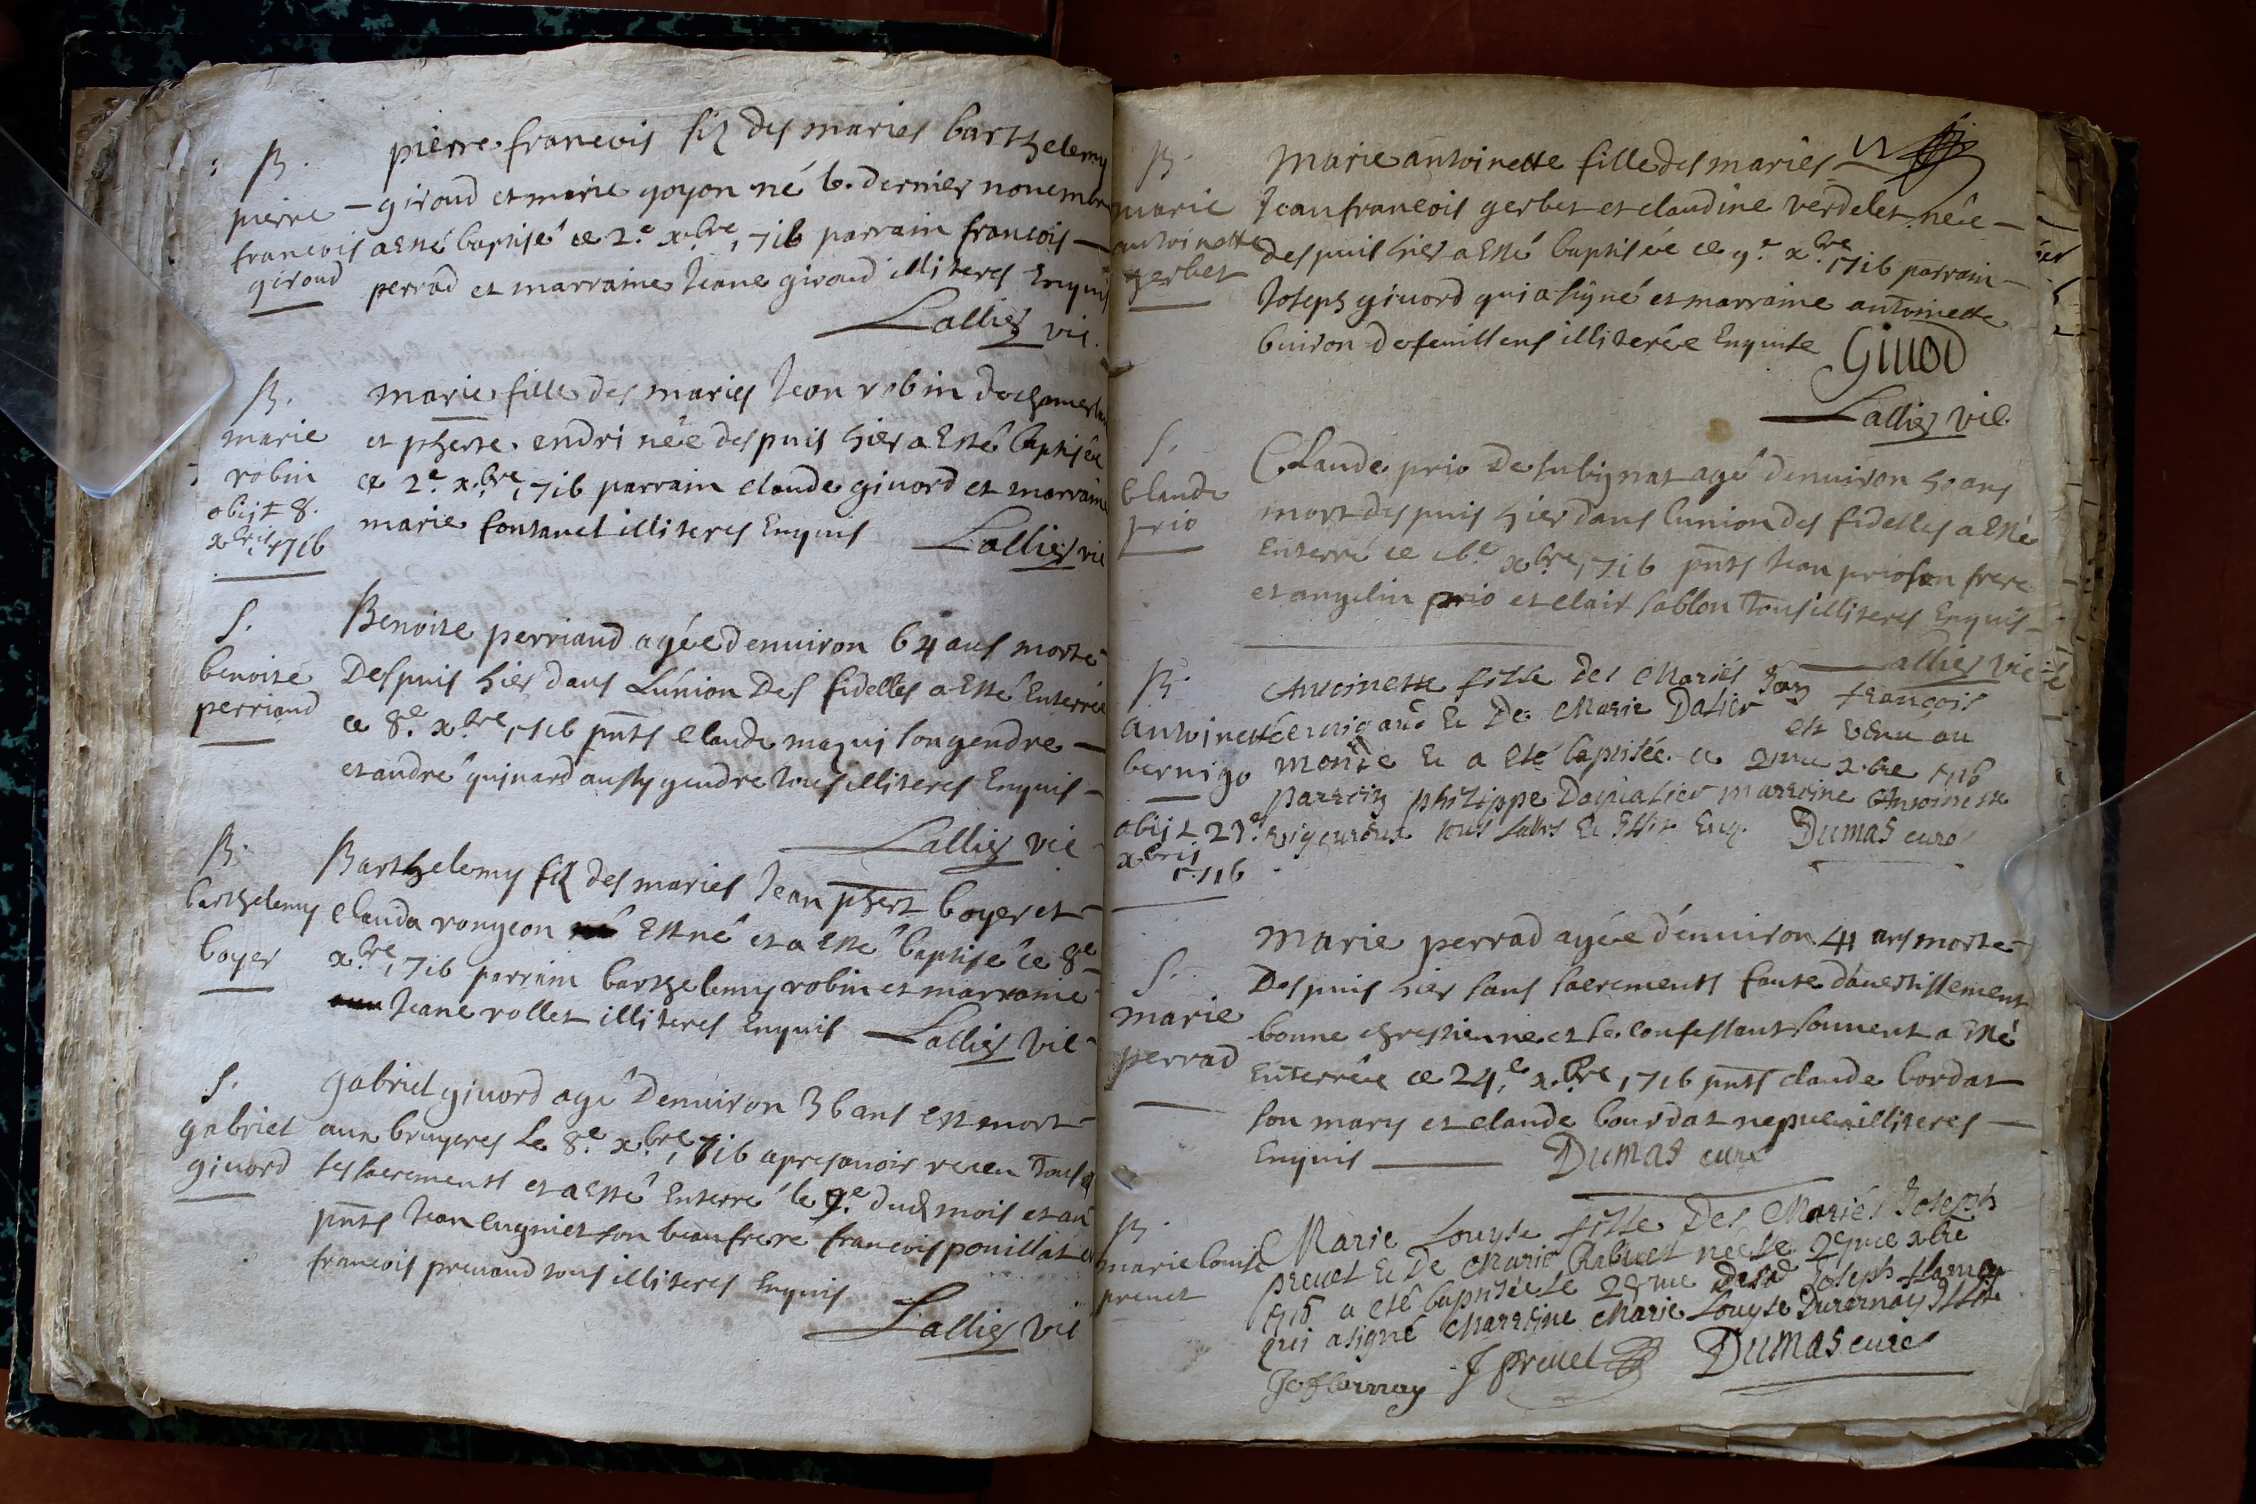 B.
pierre
francois
giroud
pierre francois filz des maries barthelemy
giroud et marie goyon né le dernier novembre
a esté baptisé ce 2.e xbre 1716 parrain francois
perrad et marraine Jeane giroud illiteres Enquis
Lallier vic.
B.
marie
robin
obijt 8.
xbris 1716
marie fille des maries Jean robin de
et phserte endri née despuis hier a Esté baptisée
ce 2.e xbre 1716 parrain claude giuord et marraine
marie fontanel illiteres Enquis Lallier vic
S.
benoite
perriaud
Benoite perriaud agée denuiron 64 ans morte
Despuis hier dans L'union Des fidelles a Esté Enterrée
ce 8.e xbre 1716 pnts Claude maqui son gendre
et andre guinard aussy gendre tous illiteres Enquis
Lallier vic
B.
barthelemy
boyer
Barthelemy filz des maries Jean phert boyer et
Clauda rongeon Est né et a Esté baptisé ce 8e
xbre 1716 parrain barthelemy robin et marraine
Jeane rollet illiteres Enquis Lallier vic
S.
gabriel
giuord
gabriel giuord agé Denuiron 36 ans est mort
aux bruyeres Le 8.e xbre 1716 apres auoir receu Tous
les sacrements et a esté Enterré le 9.e dud mois et an
pnts Jean eugniet son beaufrere francois pouillat et
francois preuaud tous illiteres Enquis
Lallier vic
B.
marie
antoinette
gerbet
Marie antoinette fille des maries
Jean francois gerbet et claudine verdelet née
despuis hier a Esté baptisée ce 9.e xbre 1716 parrain
Joseph giuord qui a signé et marraine antoinette
buiron de feuillens illiterée Enquise Giuod
Lallier vic.
S.
Claude
prio
Claude prio De lubignat agé denuiron 50 ans
mort despuis hier dans l'union des fidelles a Esté
Enterré ce 16e xbre 1716 pnts Jean prio son frere
et angelin prio et clair sablon Tous illiteres Enquis
Lallier vic
B.
antoinette
bernigo
obijt 23e
xbris
1716
Antoinette fille Des Mariés Jan françois
et De Marie Dalier est venu au
monde et a eté baptisée ce xbre 1716
Parrein philippe marreine Antoinette
Dumas curé
S.
marie
perrad
Marie perrad agée d'enuiron 41 ans morte
Despuis hier sans sacrements faute d'auertissement
bonne chrestienne et se confessant souuent a Esté
Enterrée ce 24.e xbre 1716 pnts claude bordat
son mary et claude bourdat nepueu illiteres
Enquis Dumas curé
B.
marie louise
preuet
Marie Louyse fille Des Mariés Joseph
preuet et De Marie Rabuet née le xbre
1716 a eté baptisée le Joseph
qui a signé Marreine Marie Louyse
J preuet Dumas curé